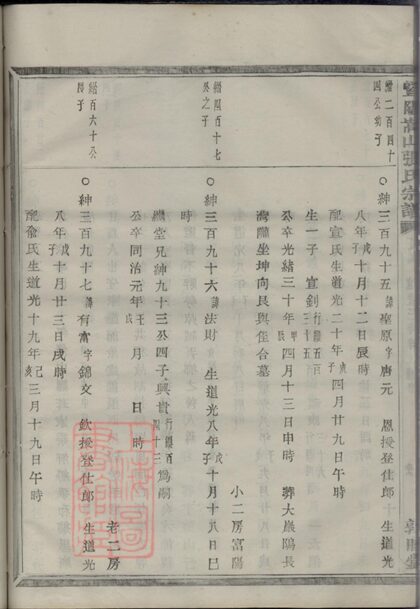 暨陽嵩山張氏宗譜
繼二百四十
四公幼子
○紳三百九十五諱聖原字唐元 恩授登仕郎 生道光
八年戊子十月十二日辰時
配宣氏生道光二十年庚子四月廿九日午時
生一子 宣釗
公卒光緒三十年甲辰四月十三日申時 葬大嚴隖長
灣隴坐坤向艮與侄合墓
小二房富陽
繼百十七
公之子
○紳三百九十六諱法財 生道光八年戊子十月十八日巳
時
繼堂兄紳九十三公四子興貴行繼百四十三爲嗣
公卒同治元年壬戌 月 日 時
老二房
繼百六十公
長子
○紳三百九十七諱有富字錦文 欽授登仕郎 生道光
八年戊子十月廿三日戌時
配俞氏生道光十九年己亥三月十九日午時